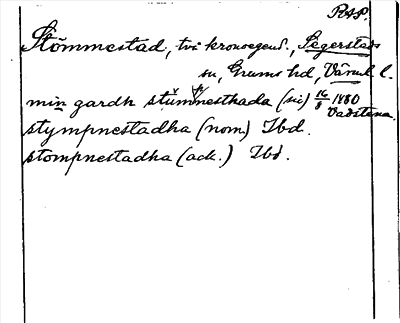 RAP.
Stömmestad, två kronoegend., Segerstads
sn, Grums hd, Värml l.
min gardh stummnesthada (sic) 16/8 1480
Vadstena.
stympnestadha (nom.) Ibd.
stompnestadha (ack.) Ibd.